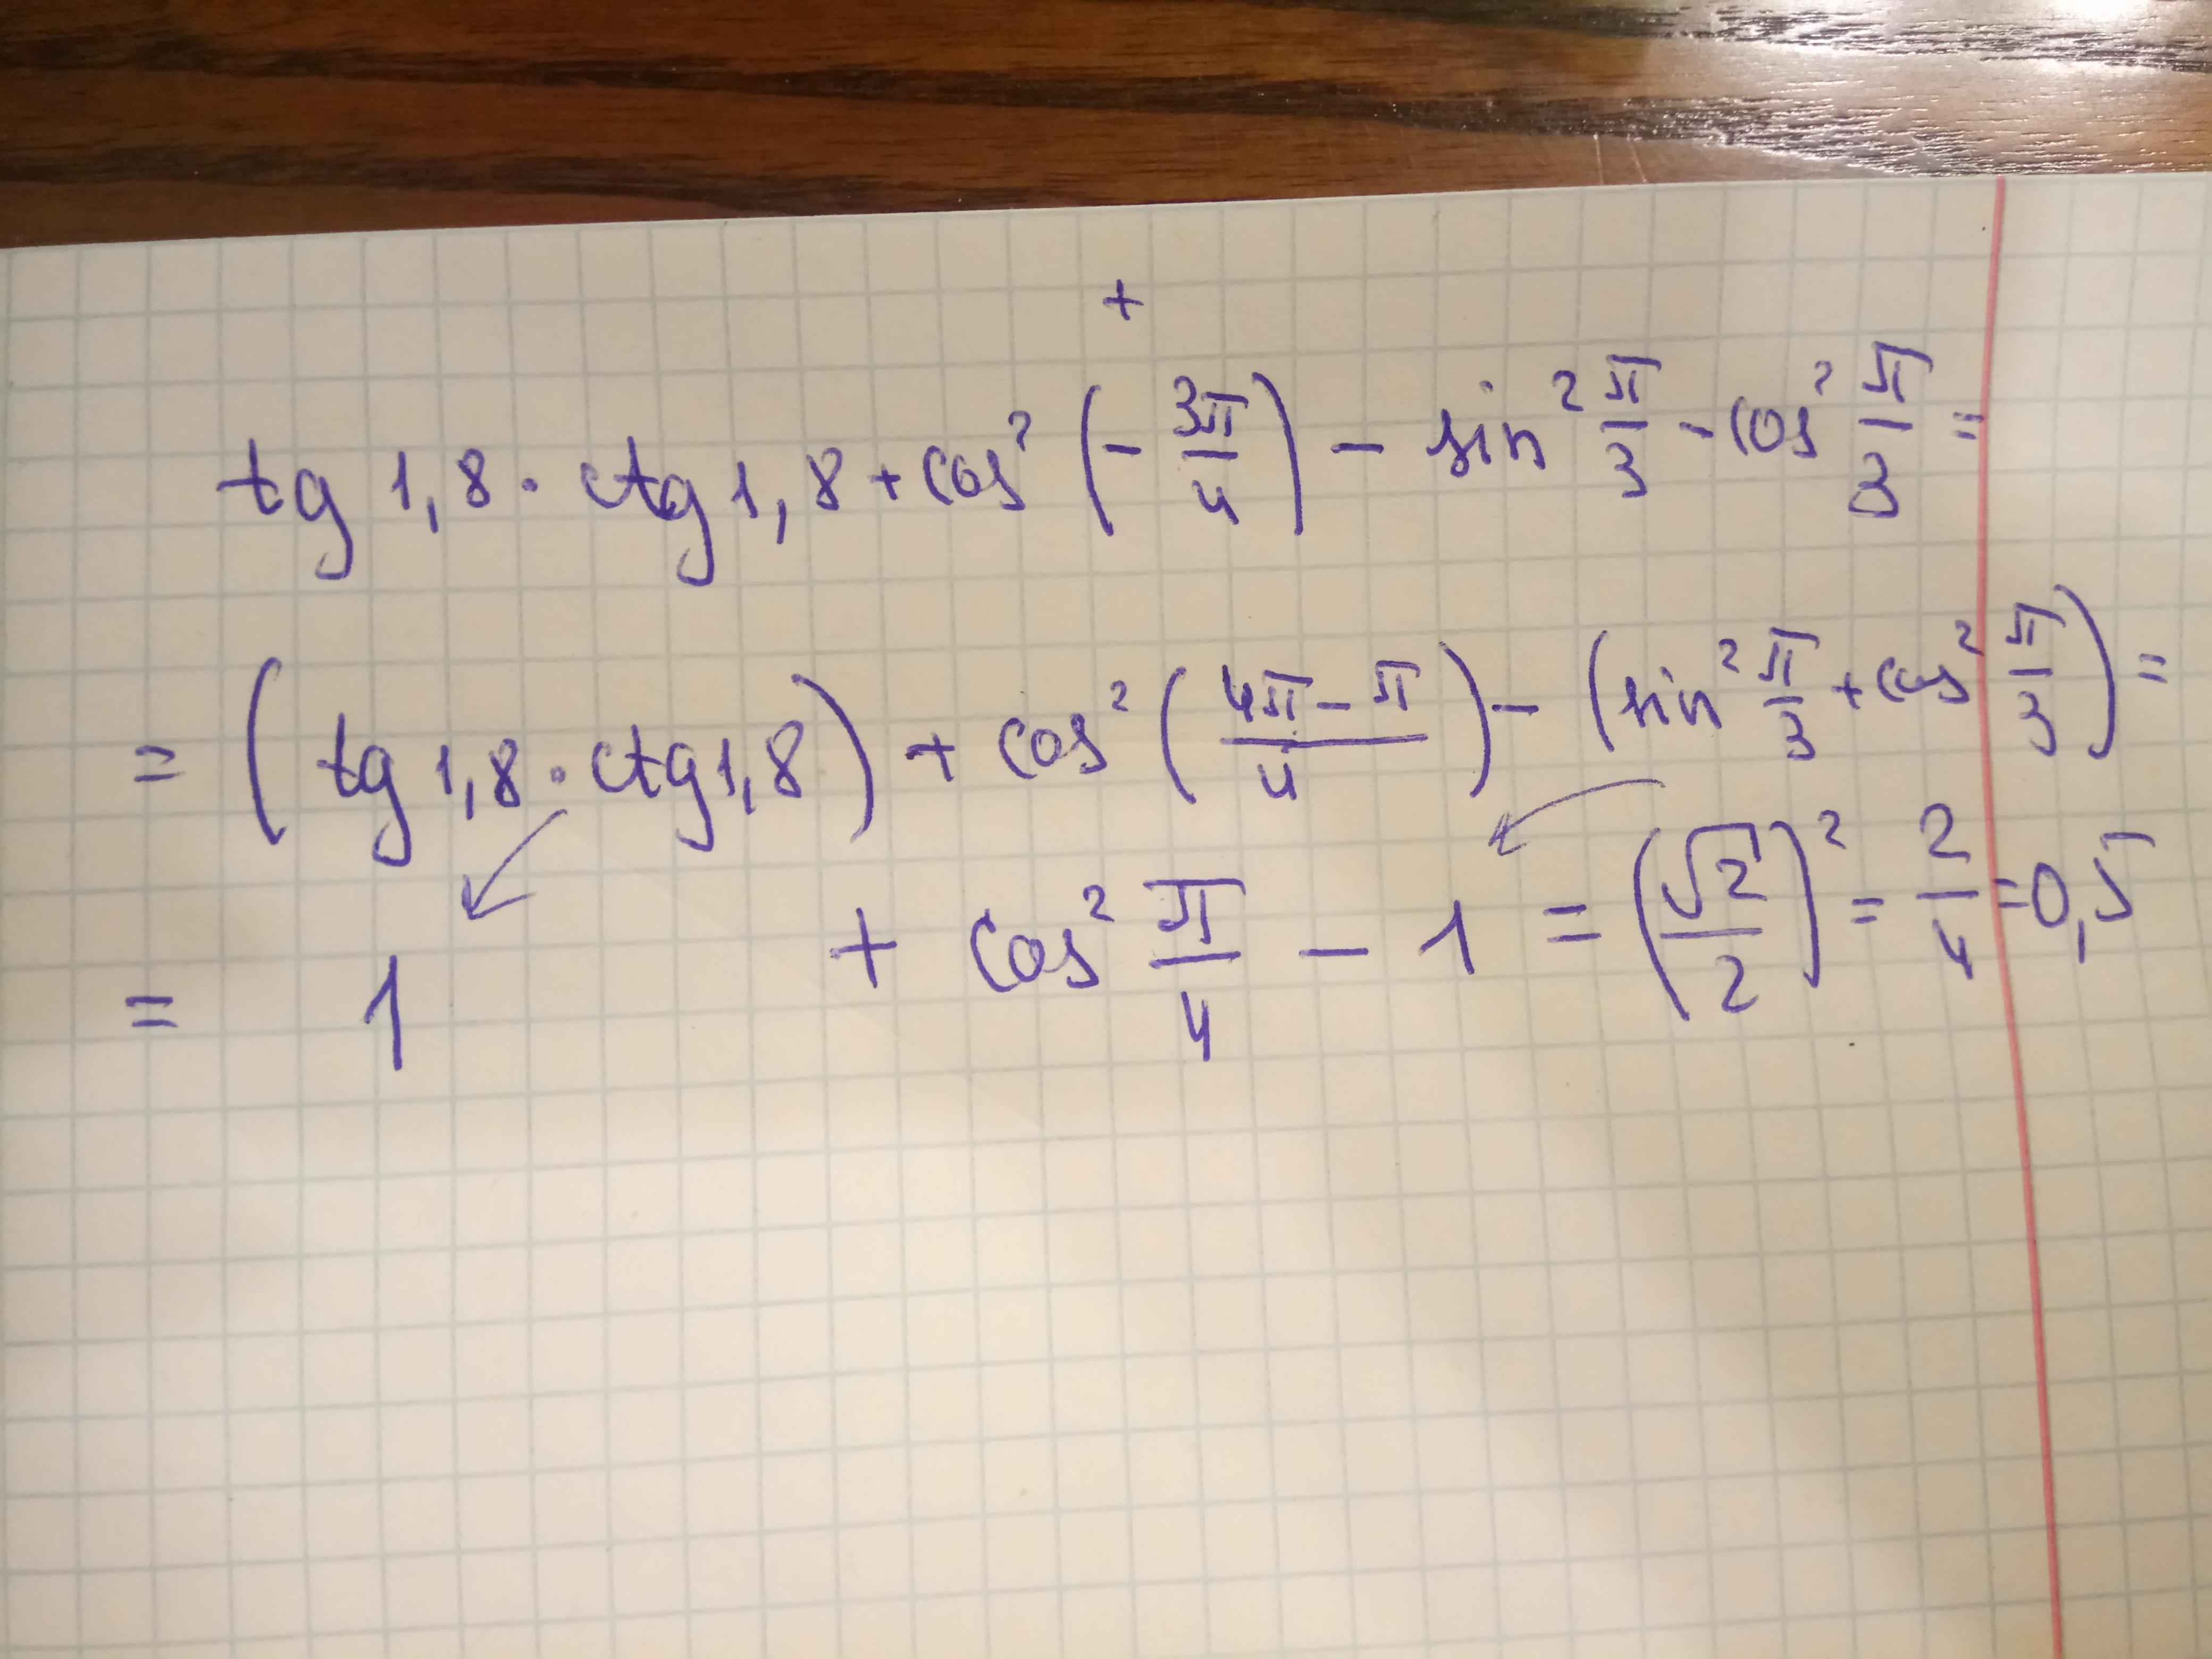 +
tg 1,8 · ctg 1,8 + cos² (− 3π/4) − sin² π/3 − cos² π/3 =
= (tg 1,8 · ctg 1,8) + cos² ((4π − π)/4) − (sin² π/3 + cos² π/3) =
= 1 + cos² π/4 − 1 = (√2/2)² = 2/4 = 0,5